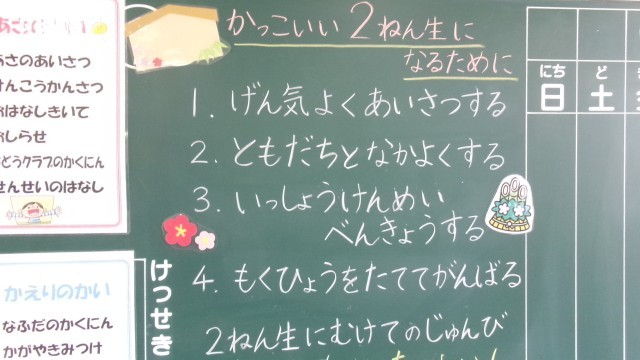 かっこいい2ねん生に
なるために
1. げん気よくあいさつする
2. ともだちとなかよくする
3. いっしょうけんめい
べんきょうする
4. もくひょうをたててがんばる
2ねん生にむけてのじゅんび
けんこうかんさつ
おはなしきいて
おしらせ
せんせいのはなし
かえりのかい
なふだのかくにん
かがやきみつけ
けっせき
にち
日
ど
土